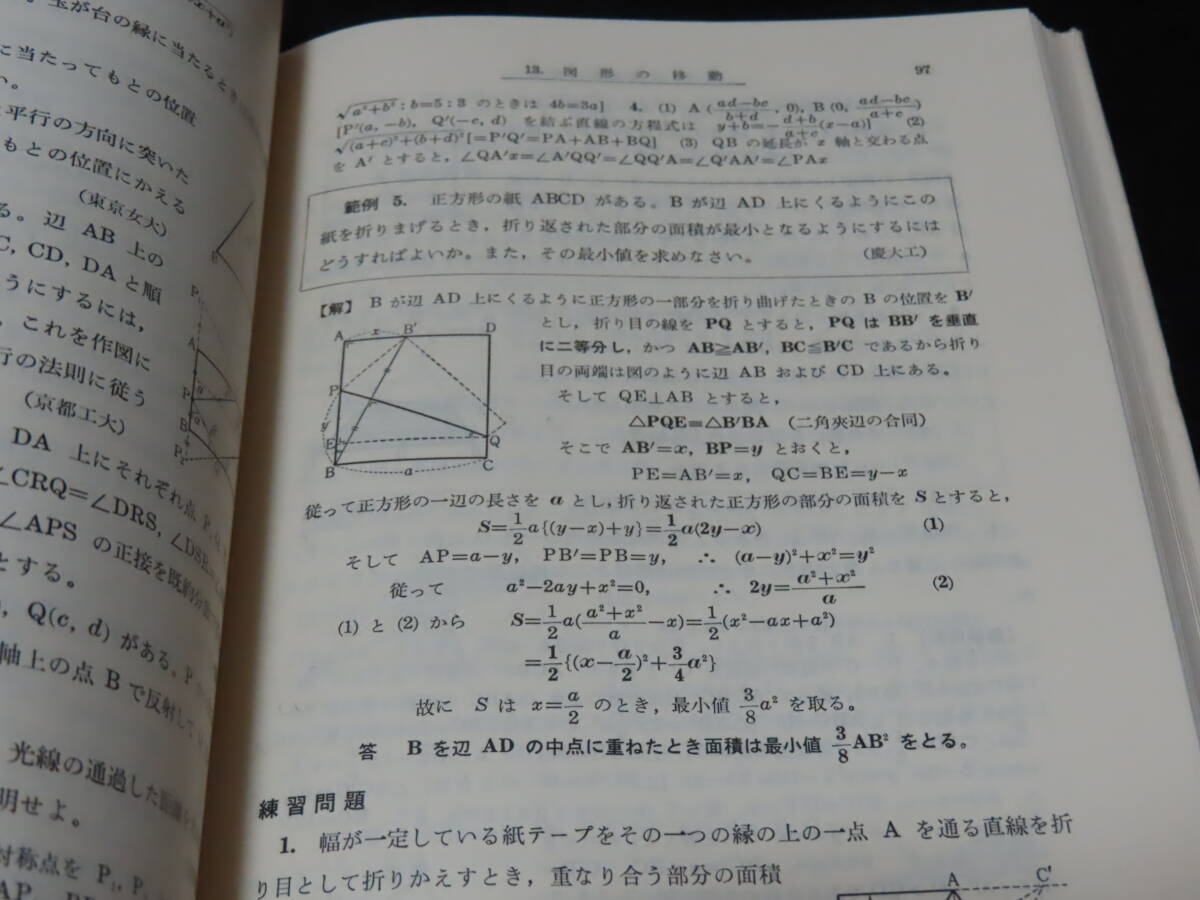 玉が台の縁に当たるとき
に当たってもとの位置
い。
平行の方向に突いた
もとの位置にかえる
(東京女大)
る。辺 AB 上の
C, CD, DA と順
うにするには,
これを作図に
行の法則に従う
(京都工大)
DA 上にそれぞれ点 P,
∠CRQ=∠DRS,
∠APS の正接を既約分
とする。
Q(c, d) がある。P
軸上の点 B で反射して
光線の通過した
明せよ。
対称点を P₁,
13. 図形の移動
97
√a²+b² : b=5 : 3 のときは 4b=3a] 4. (1) A (ad−bc/b+d, 0), B (0, ad−bc/a+c)
[P′(a, −b), Q′(−c, d) を結ぶ直線の方程式は y+b=−d+b/a+c(x−a)] (2)
√(a+c)²+(b+d)²[=P′Q′=PA+AB+BQ] (3) QB の延長が x 軸と交わる点
を A′ とすると, ∠QA′x=∠A′QQ′=∠QQ′A=∠Q′AA′=∠PAx
範例 5. 正方形の紙 ABCD がある。B が辺 AD 上にくるようにこの
紙を折りまげるとき, 折り返された部分の面積が最小となるようにするには
どうすればよいか。また, その最小値を求めなさい。 (慶大工)
【解】 B が辺 AD 上にくるように正方形の一部分を折り曲げたときの B の位置を B′
とし, 折り目の線を PQ とすると, PQ は BB′ を垂直
に二等分し, かつ AB≧AB′, BC≦B′C であるから折り
目の両端は図のように辺 AB および CD 上にある。
そして QE⊥AB とすると,
△PQE≡△B′BA (二角夾辺の合同)
そこで AB′=x, BP=y とおくと,
PE=AB′=x, QC=BE=y−x
A x B′ D
P
y
E Q
B a C
従って正方形の一辺の長さを a とし, 折り返された正方形の部分の面積を S とすると,
S=1/2a{(y−x)+y}=1/2a(2y−x) (1)
そして AP=a−y, PB′=PB=y, ∴ (a−y)²+x²=y²
従って a²−2ay+x²=0, ∴ 2y=a²+x²/a (2)
(1) と (2) から S=1/2a(a²+x²/a−x)=1/2(x²−ax+a²)
=1/2{(x−a/2)²+3/4a²}
故に S は x=a/2 のとき, 最小値 3/8a² を取る。
答 B を辺 AD の中点に重ねたとき面積は最小値 3/8AB² をとる。
練習問題
1. 幅が一定している紙テープをその一つの縁の上の一点 A を通る直線を折
り目として折りかえすとき, 重なり合う部分の面積
A C′